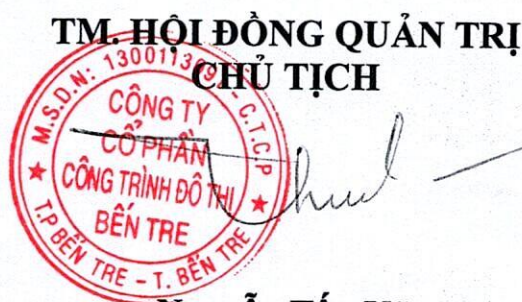 TM. HỘI ĐỒNG QUẢN TRỊ
CHỦ TỊCH
M.S.D.N: - C.T.C.P
CÔNG TY
CỔ PHẦN
CÔNG TRÌNH ĐÔ THỊ
BẾN TRE
T.P BẾN TRE - T. BẾN TRE